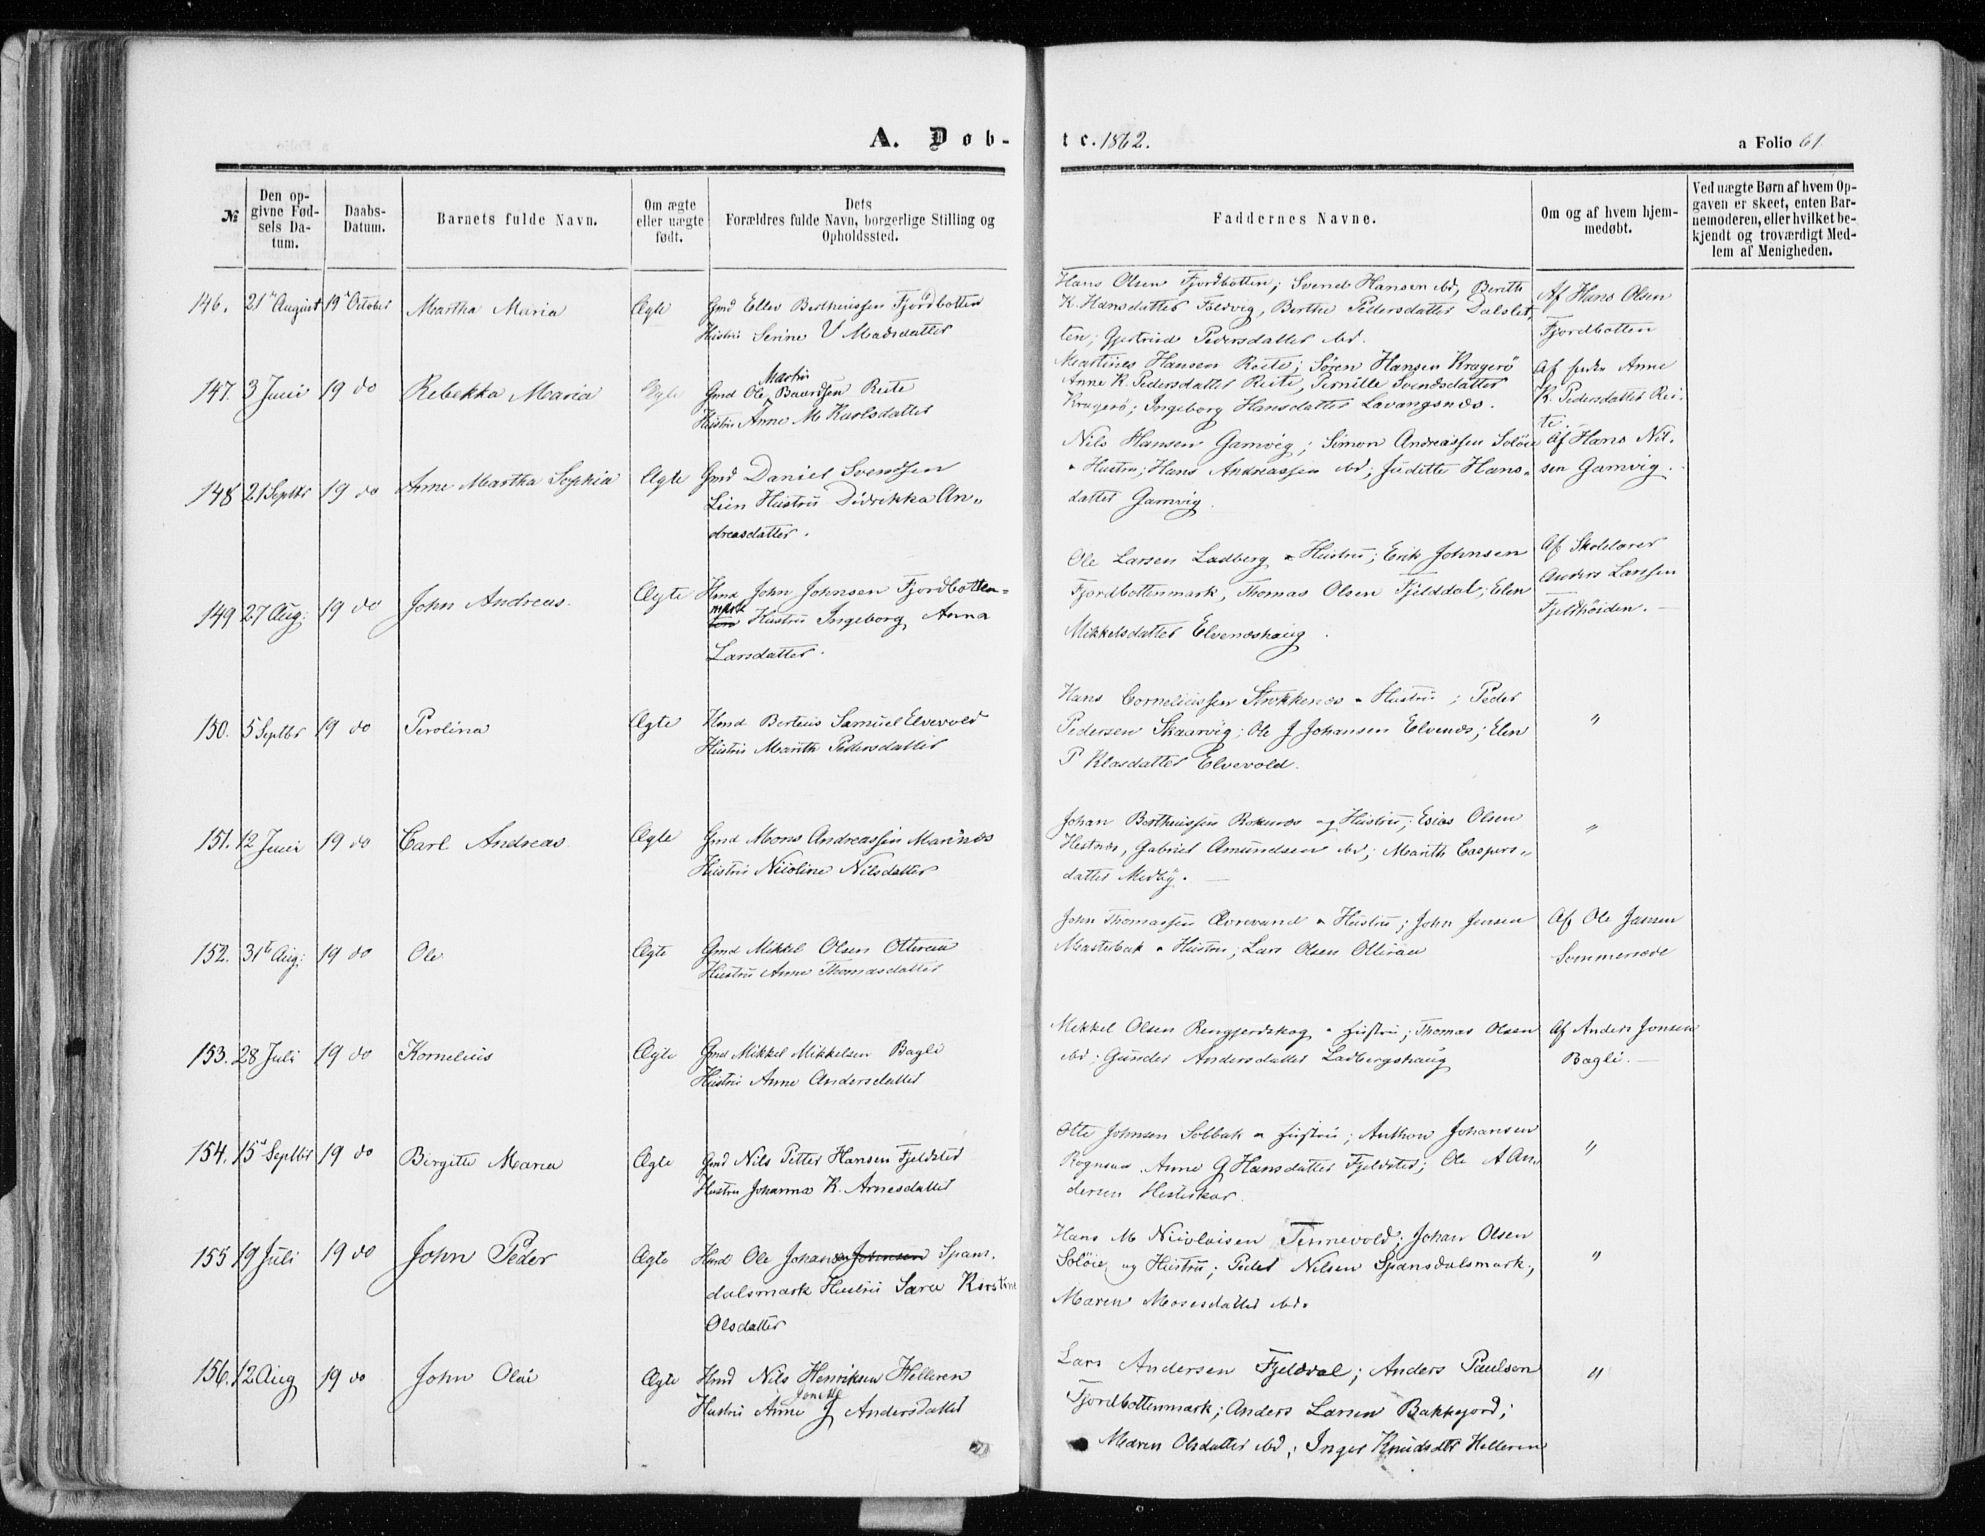 A. Døb-
te. 1862.
a Folio 61
№
Den op-
givne Fød-
sels Da-
tum.
Daabs-
Datum.
Barnets fulde Navn.
Om ægte
eller uægte
født.
Dets
Forældres fulde Navn, borgerlige Stilling og
Opholdssted.
Faddernes Navne.
Om og af hvem hjem-
medøbt.
Ved uægte Børn af hvem Op-
gaven er skeet, enten Bar-
nemoderen, eller hvilket be-
kjendt og troværdigt Med-
lem af Menigheden.
146. 21 August 19 October Martha Maria Ægte Gmd Elles Bertheussen Fjordbotten
Hustru Serine V Madsdatter
Hans Olsen Fjordbotten; Svend Hansen ibd, Berith
K. Hansdatter Foldvig, Berthe Pedersdatter Dalslet
ten; Gjertrud Pedersdatter ibd.
Af Hans Olsen
Fjordbotten
147. 3 Juni 19 do Rebekka Maria Ægte Gmd Ole Martin Baardsen Reite
Hustru Anne M Karlsdatter
Martines Hansen Reite; Søren Hansen Kragerö
Anne K. Pedersdatter Reite, Pernille Svendsdatter
Kragerö; Ingeborg Hansdatter Lavangsnæs.
Af Anne
K. Pedersdatter Rei-
te.
148 21 Septbr 19 do Anne Martha Sophia Ægte Gmd Daniel Svendsen
Lien Hustru Didrikka An-
dreasdatter.
Nils Hansen Gamvig; Simon Andreassen Soløie
& Hustru; Hans Andreassen ibd; Judithe Hans-
datter Gamvig.
Af Hans Nil-
sen Gamvig.
149 27 Aug: 19 do John Andreas. Ægte Hmd John Johnsen Fjordbotten-
mark Hustru Ingeborg Anna
Larsdatter.
Ole Larsen Ladberg & Hustru; Erik Johnsen
Fjordbottenmark, Thomas Olsen Fjelddal; Elen
Mikkelsdatter Elveneshaug.
Af Skolelærer
Anders Larssen
Fjeldhöiden.
150. 5 Septbr 19 do Perolina Ægte Hmd Berteus Samuel Elvevold
Hustru Marith Pedersdatter
Hans Corneliussen Stokkenes & Hustru; Peder
Pedersen Skaarvig; Ole J Johansen Elvenes; Elen
P Klasdatter Elvevold.
"
151. 12 Juni 19 do Carl Andreas Ægte Gmd Mons Andreassen Marinæs
Hustru Nicoline Nilsdatter
Johan Berthuissen Roknæs og Hustru, Esias Olsen
Hestnes, Gabriel Amundsen ibd; Marith Caspers-
datter Medby.
"
152. 31te Aug: 19 do Ole Ægte Gmd Mikkel Olsen Otteraa
Hustru Anne Thomasdatter
John Thomassen Øvrevand & Hustru; John Jensen
Masterbak & Hustru; Lars Olsen Otteraa
Af Ole Jansen
Sommersæde
153. 28 Juli 19 do Kornelius Ægte Gmd Mikkel Mikkelsen Bagli
Hustru Anne Andersdatter
Mikkel Olsen Rengjerdskog & Hustru; Thomas Olsen
ibd; Gunder Andersdatter Ladbergshaug
Af Anders Jonsen
Bagli.
154. 15 Septbr 19 do Birgitte Maria Ægte Gmd Nils Petter Hansen Fjeldsted
Hustru Johanna K. Arnesdatter
Otte Johnsen Solbak & Hustru; Anthon Johansen
Rognsaa Anne G Hansdatter Fjeldsted; Ole A An-
dersen Hesteskar.
"
155 19 Juli 19 do John Peder Ægte Hmd Ole Johansen Johnsen Spans-
dalsmark Hustru Sara Kirstine
Olsdatter
Hans M Nicolaisen Tennevold; Johan Olsen
Soløie og Hustru; Peder Nilsen Spansdalsmark;
Maren Mosesdatter ibd.
"
156. 12 Aug 19 do John Olai Ægte Hmd Nils Henriksen Helleren
Hustru Anne Jonette J Andersdatter
Lars Andersen Fjeldval; Anders Paulsen
Fjordbottenmark; Anders Larsen Bakkejord;
Maren Olsdatter ibd; Inger Knudsdtr Helleren
"